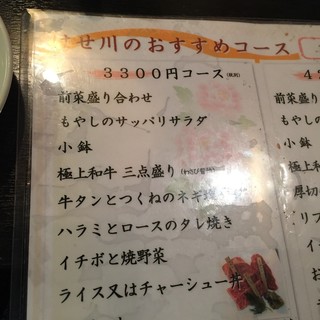 はせ川のおすすめコース
３３００円コース(税別)
前菜盛り合わせ
もやしのサッパリサラダ
小鉢
極上和牛 三点盛り
牛タンとつくねのネギ
ハラミとロースのタレ焼き
イチボと焼野菜
ライス又はチャーシュー丼
前菜
もやしの
小鉢
極上和
厚切
リブ
ハ
イチ